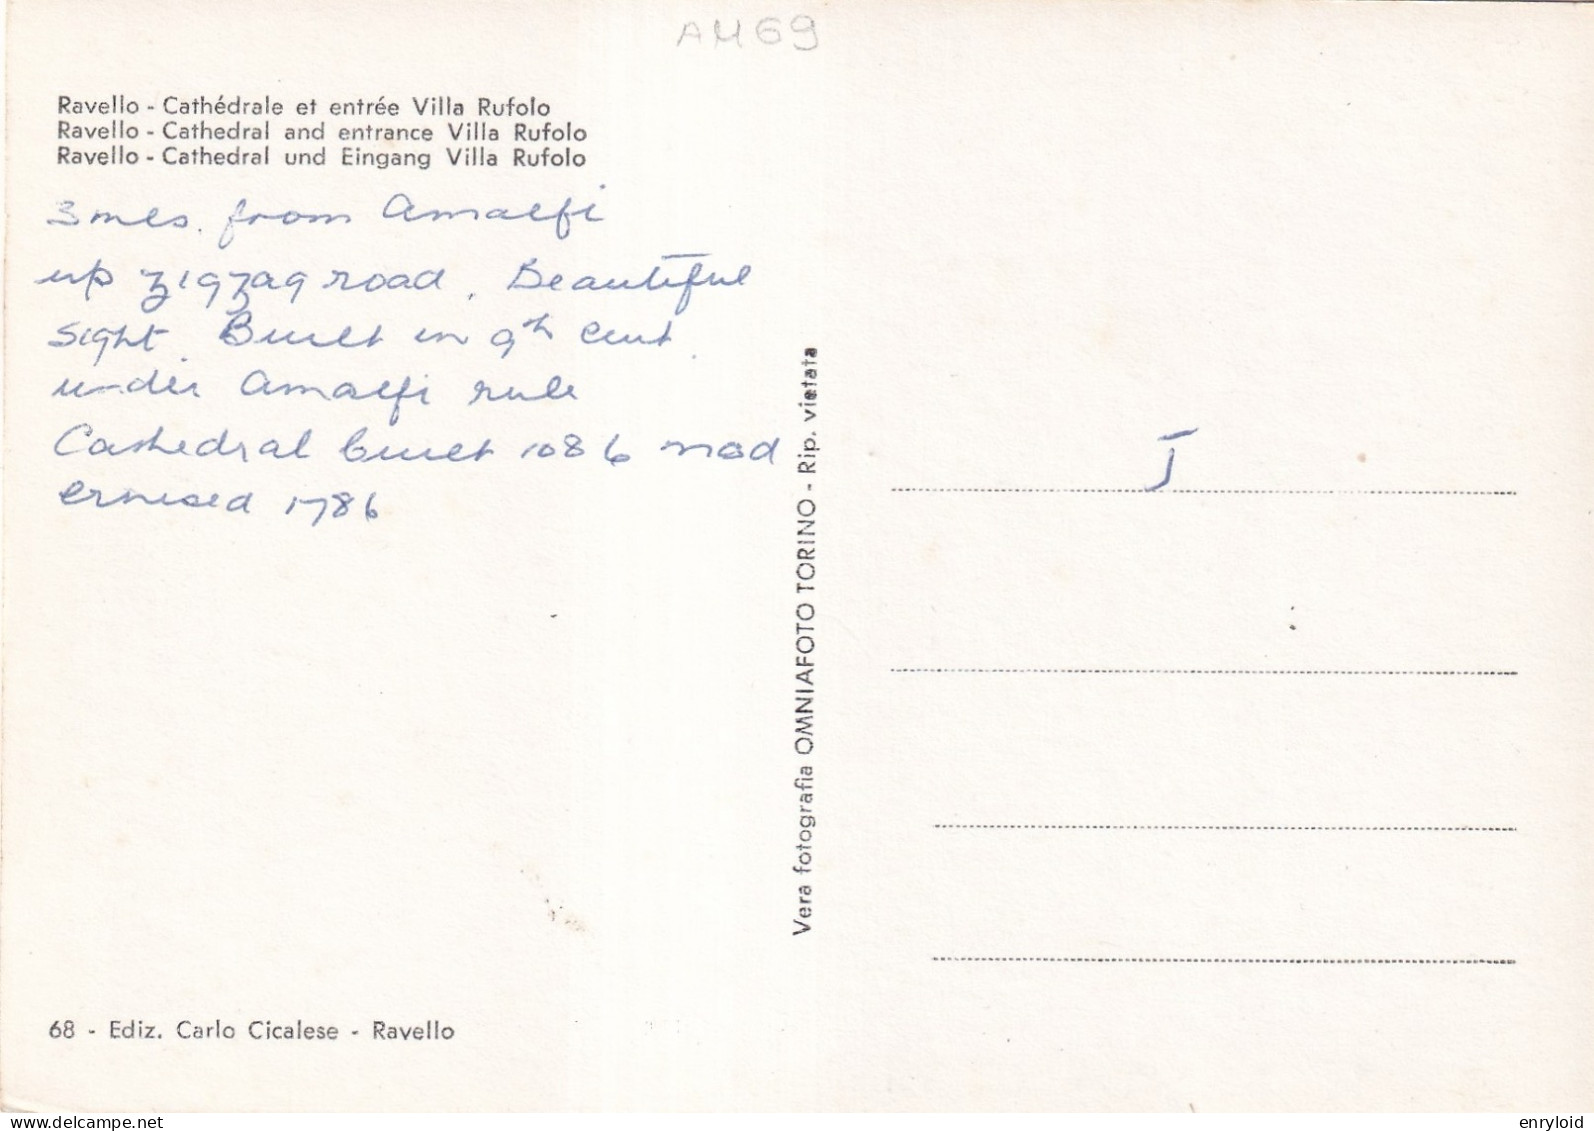 AM69
Ravello - Cathédrale et entrée Villa Rufolo
Ravello - Cathedral and entrance Villa Rufolo
Ravello - Cathedral und Eingang Villa Rufolo
3 mls. from Amalfi
up zigzag road. Beautiful
sight. Built in 9th cent.
under Amalfi rule
Cathedral built 1086 mod
ernised 1786
J
Vera fotografia OMNIAFOTO TORINO - Rip. vietata
68 - Ediz. Carlo Cicalese - Ravello
delcampe.net
enryloid